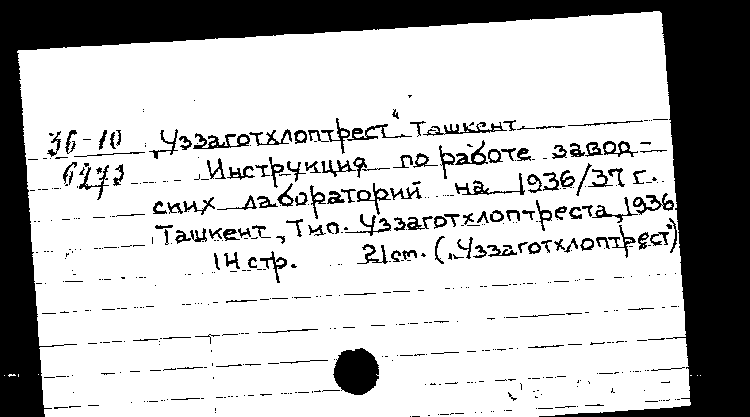 36-10 „Уззаготхлоптрест“. Ташкент.
6273 Инструкция по работе завод-
ских лабораторий на 1936/37 г.
Ташкент, Тип. Уззаготхлоптреста, 1936.
14 стр. 21 cm. („Уззаготхлоптрест“)